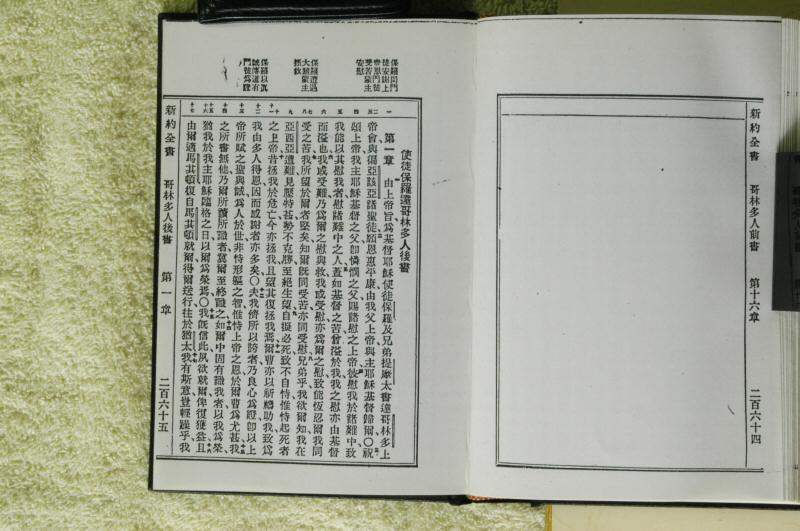 新約全書
哥林多人前書
第十六章
二百六十四
保羅向門
徒安謝上
帝恩門徒
受苦蒙主
安慰
保羅遭遇
大難蒙主
拯救
保羅以眞
誠傳道有
門徒爲證
使徒保羅達哥林多人後書
第一章 由上帝旨、爲基督耶穌使徒保羅、及兄弟提摩太、書達哥林多上
帝會、與徧亞該亞諸聖徒、願恩惠平康、由我父上帝與主耶穌基督歸爾〇祝
頌上帝我主耶穌基督之父、卽憐憫之父、賜諸慰之上帝、彼慰我於諸難中、致
我能以其慰我者、慰諸難中之人、蓋如基督之苦、曾溢於我、我之慰亦由基督
而溢也、我或受難、乃爲爾之慰與救、我或受慰、亦爲爾之慰、致能恆忍爾我同
受之苦、我所望於爾者堅矣、知爾旣同受苦、亦同受慰、兄弟乎、我欲爾知我在
亞西亞遭難、見壓特甚、勢不克勝、至絕生望、自擬必死、致不自恃、惟恃起死者
之上帝、昔拯我於危亡、今亦拯我、且望其復拯我焉、爾曹亦以祈禱助我、致爲
我由多人得恩、因而感謝者亦多矣〇夫我儕所以誇者、乃良心爲證、卽以上
帝所賦之聖與誠、爲人於世、非恃形軀之智、惟恃上帝之恩、於爾曹爲尤甚、我
之所書無他、乃爾所讀所識者、冀爾至終識之、如爾中固有識我者、以我爲榮、
猶我於我主耶穌臨格之日、以爾爲榮焉〇我旣信此、夙欲就爾、俾復獲益、且
由爾過馬其頓、復自馬其頓就爾、得爾送行往於猶太、我有斯意、豈輕躁乎、我
新約全書
哥林多人後書
第一章
二百六十五